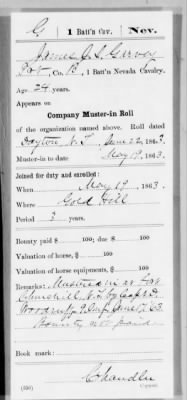 G | 1 Batt'n Cav. | Nev.
James
Pvt, Co. B, 1 Batt'n Nevada Cavalry.
Age 24 years.
Appears on
Company Muster-in Roll
of the organization named above. Roll dated
Dayton N.T. June 22, 1863.
Muster-in to date May 19, 1863.
Joined for duty and enrolled:
When May 19, 1863.
Where Gold Hill
Period 3 years.
Bounty paid $ 100; due $ 100
Valuation of horse, $ 100
Valuation of horse equipments, $ 100
Remarks: Mustered in at Fort
Churchill N.T. by Capt
63
Bounty not paid.
Book mark:
Chandler
Copyist.